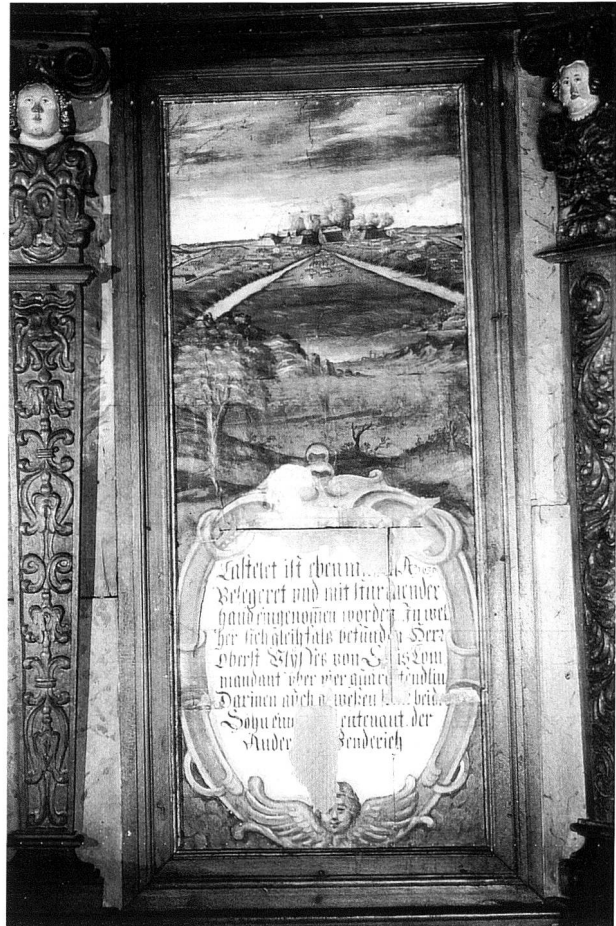 Castelet ist ebenm
Belegeret vnd mit stur ender
hand eingenom̄en worden In wel
her sich gleihfals befunden Herr
Oberst Vlysses von Com
mandant vber vier guar fendlin
Darinen auch g weßen beide
Söhn ein entenant der
Ander Fenderich